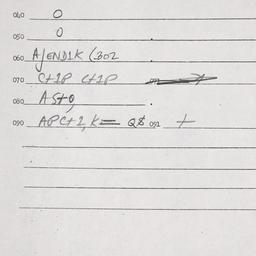 040 0
050 0
060 A/ENDIK (302
070 C+1P C+1P
080 A5+0
090 APC+2, K= Q$ 091 +